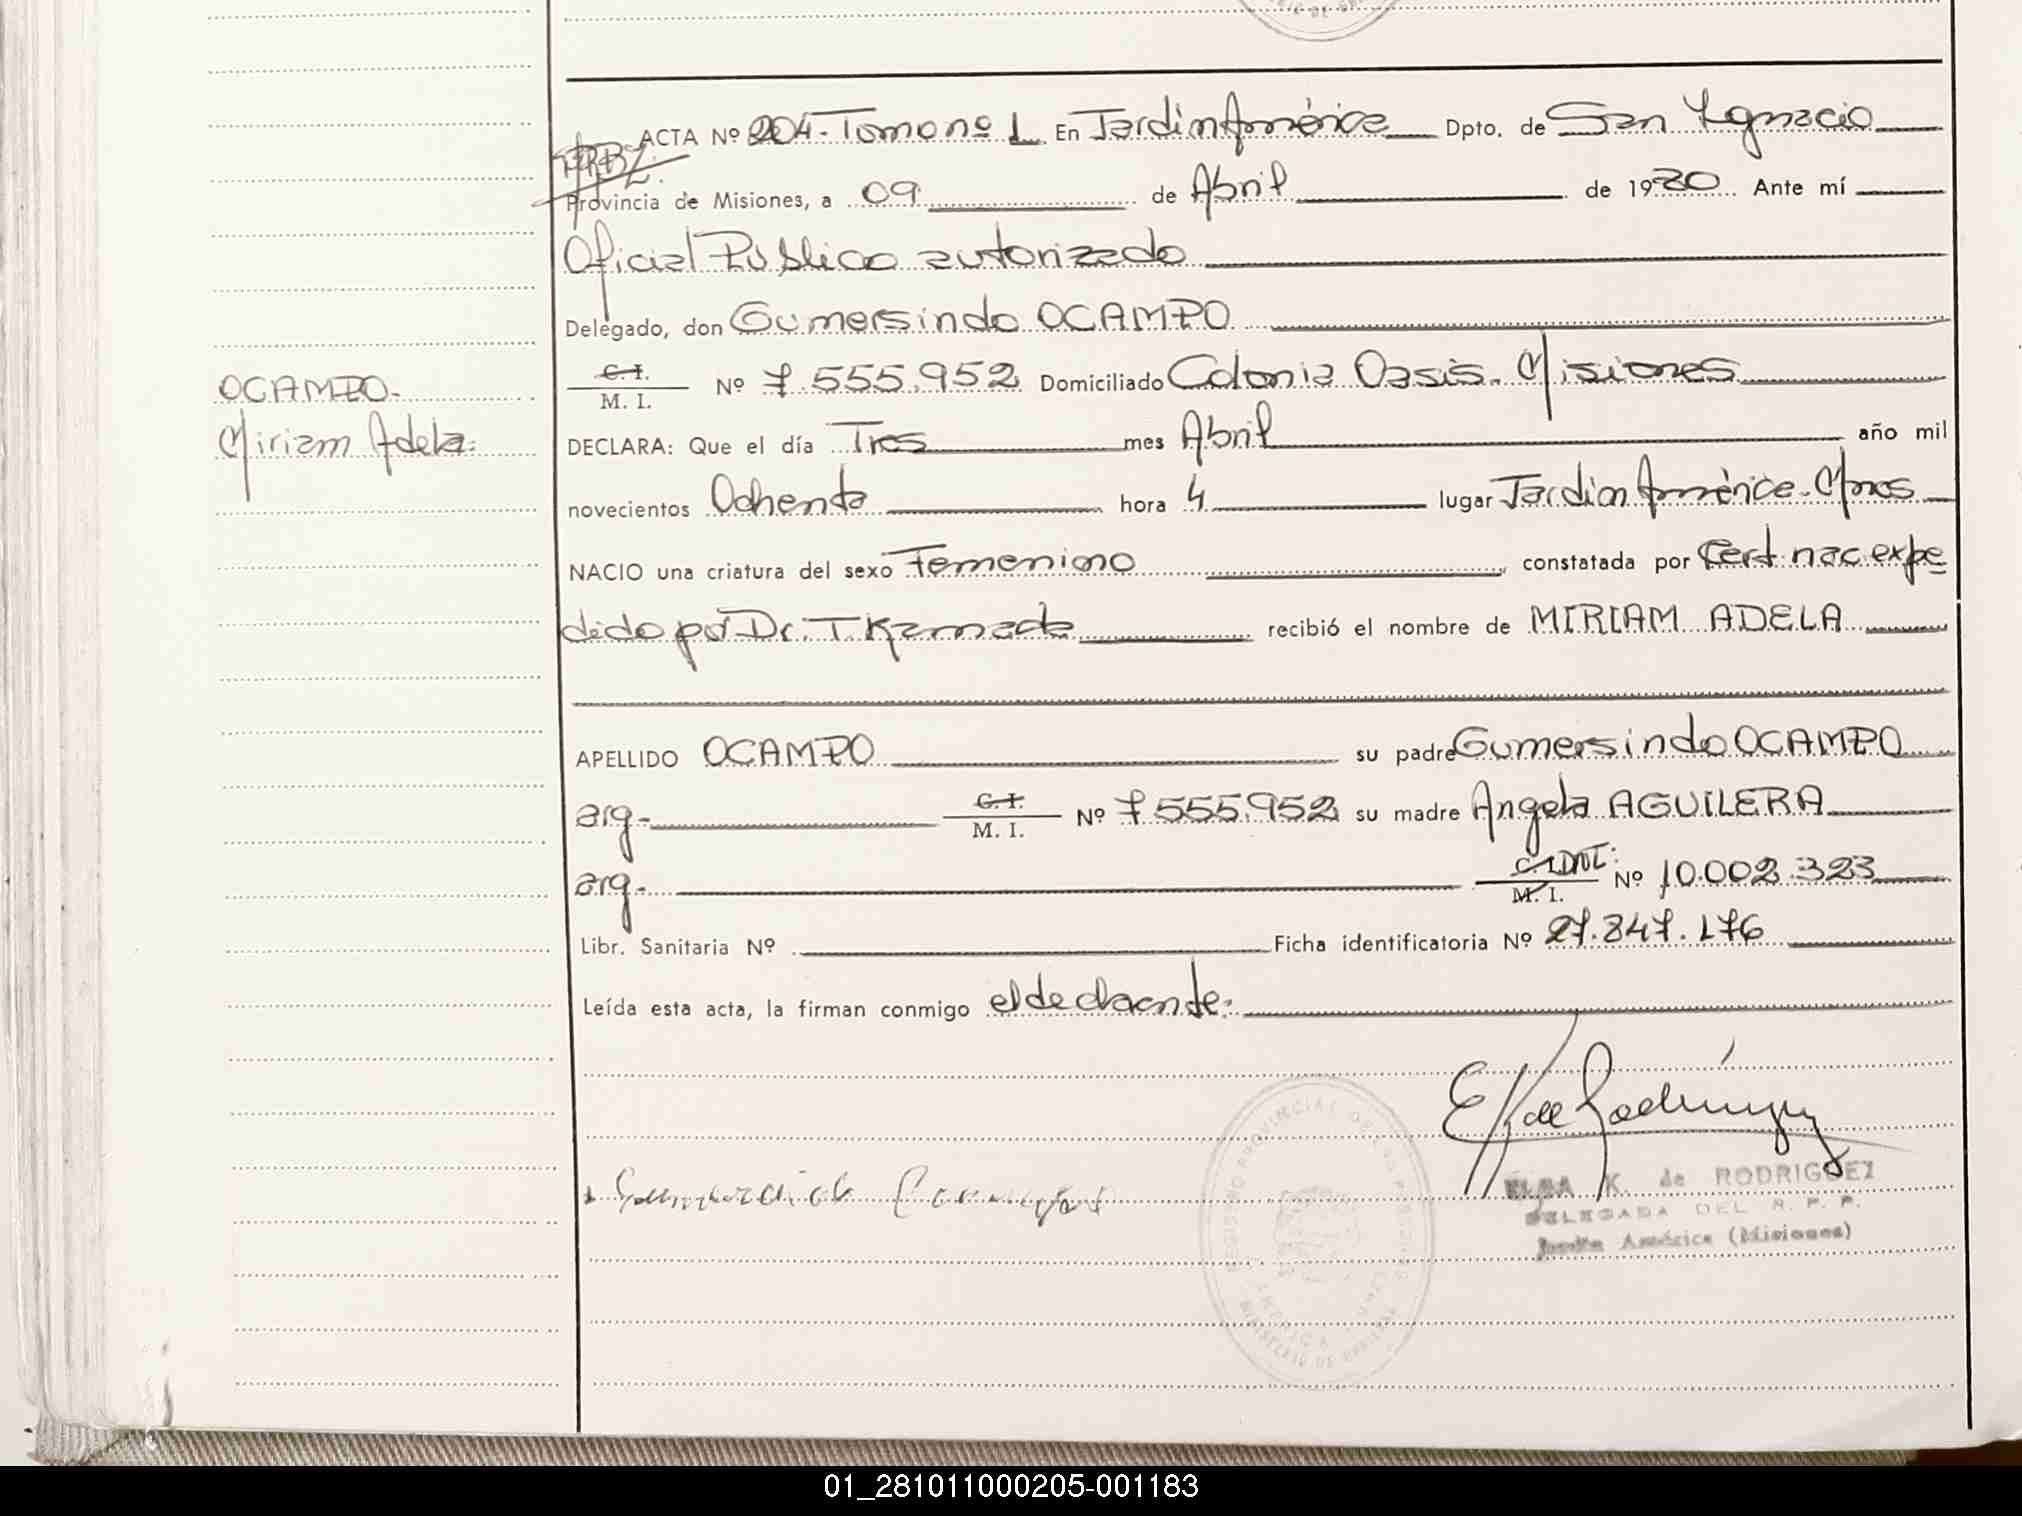 ACTA Nº 204. Tomo nº 1 En Jardin América Dpto. de San Ignacio
Provincia de Misiones, a 09 de Abril de 1980 Ante mí
Oficial Público autorizado
Delegado, don Gumersindo OCAMPO
C. I.
M. I. Nº 7.555.952 Domiciliado Colonia Oasis. Misiones
OCAMPO.
Miriam Adela.
DECLARA: Que el día Tres mes Abril año mil
novecientos Ochenta hora 4 lugar Jardin América. Mnes
NACIO una criatura del sexo Femenino constatada por Cert nac expe
dido por Dr. T Kamada recibió el nombre de MIRIAM ADELA
APELLIDO OCAMPO su padre Gumersindo OCAMPO
arg. C. I.
M. I. Nº 7.555.952 su madre Angela AGUILERA
arg. DNI. M. I. Nº 10.002.323
Libr. Sanitaria Nº Ficha identificatoria Nº 27.847.176
Leída esta acta, la firman conmigo el declarante.
ELSA K. de RODRIGUEZ
DELEGADA DEL R. P. P.
Jardín América (Misiones)
REGISTRO PROVINCIAL DE LAS PERSONAS
MINISTERIO DE GOBIERNO
01_281011000205-001183